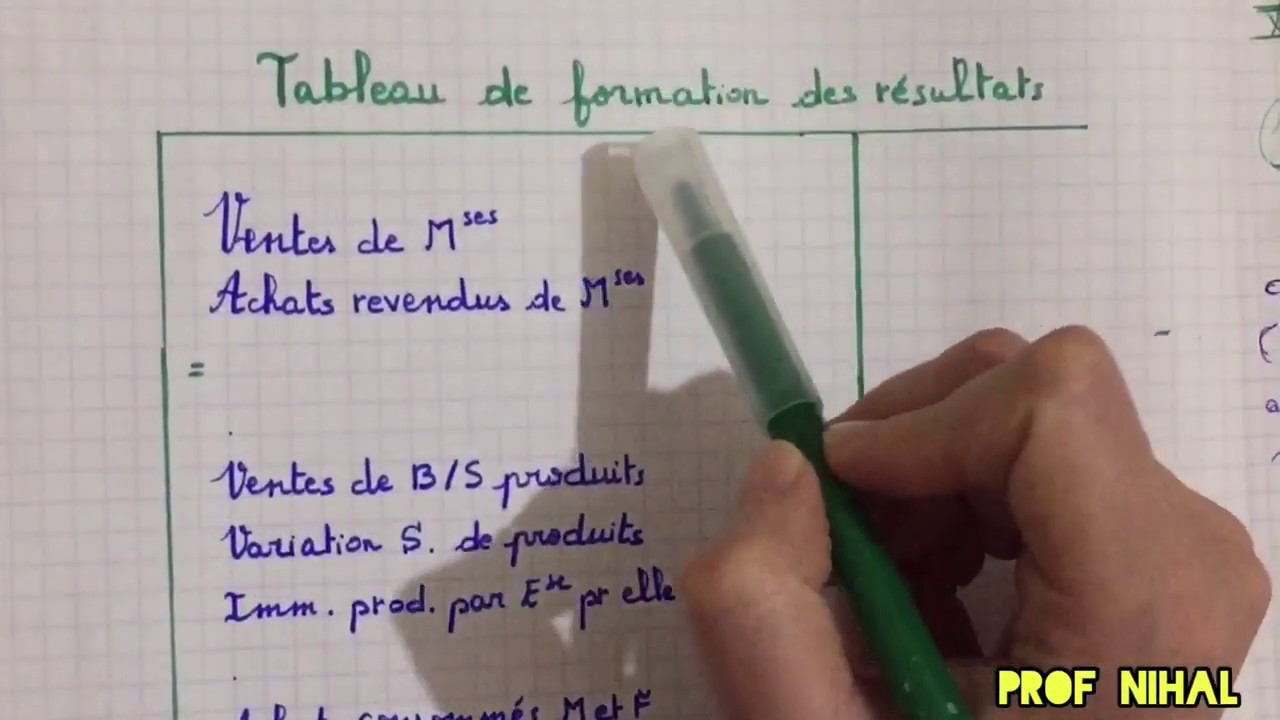 Tableau de formation des résultats
Ventes de Mses
Achats revendus de Mses
=
Ventes de B/S produits
Variation S. de produits
Imm. prod. par Ese pr elle
consommés M et F
PROF NIHAL